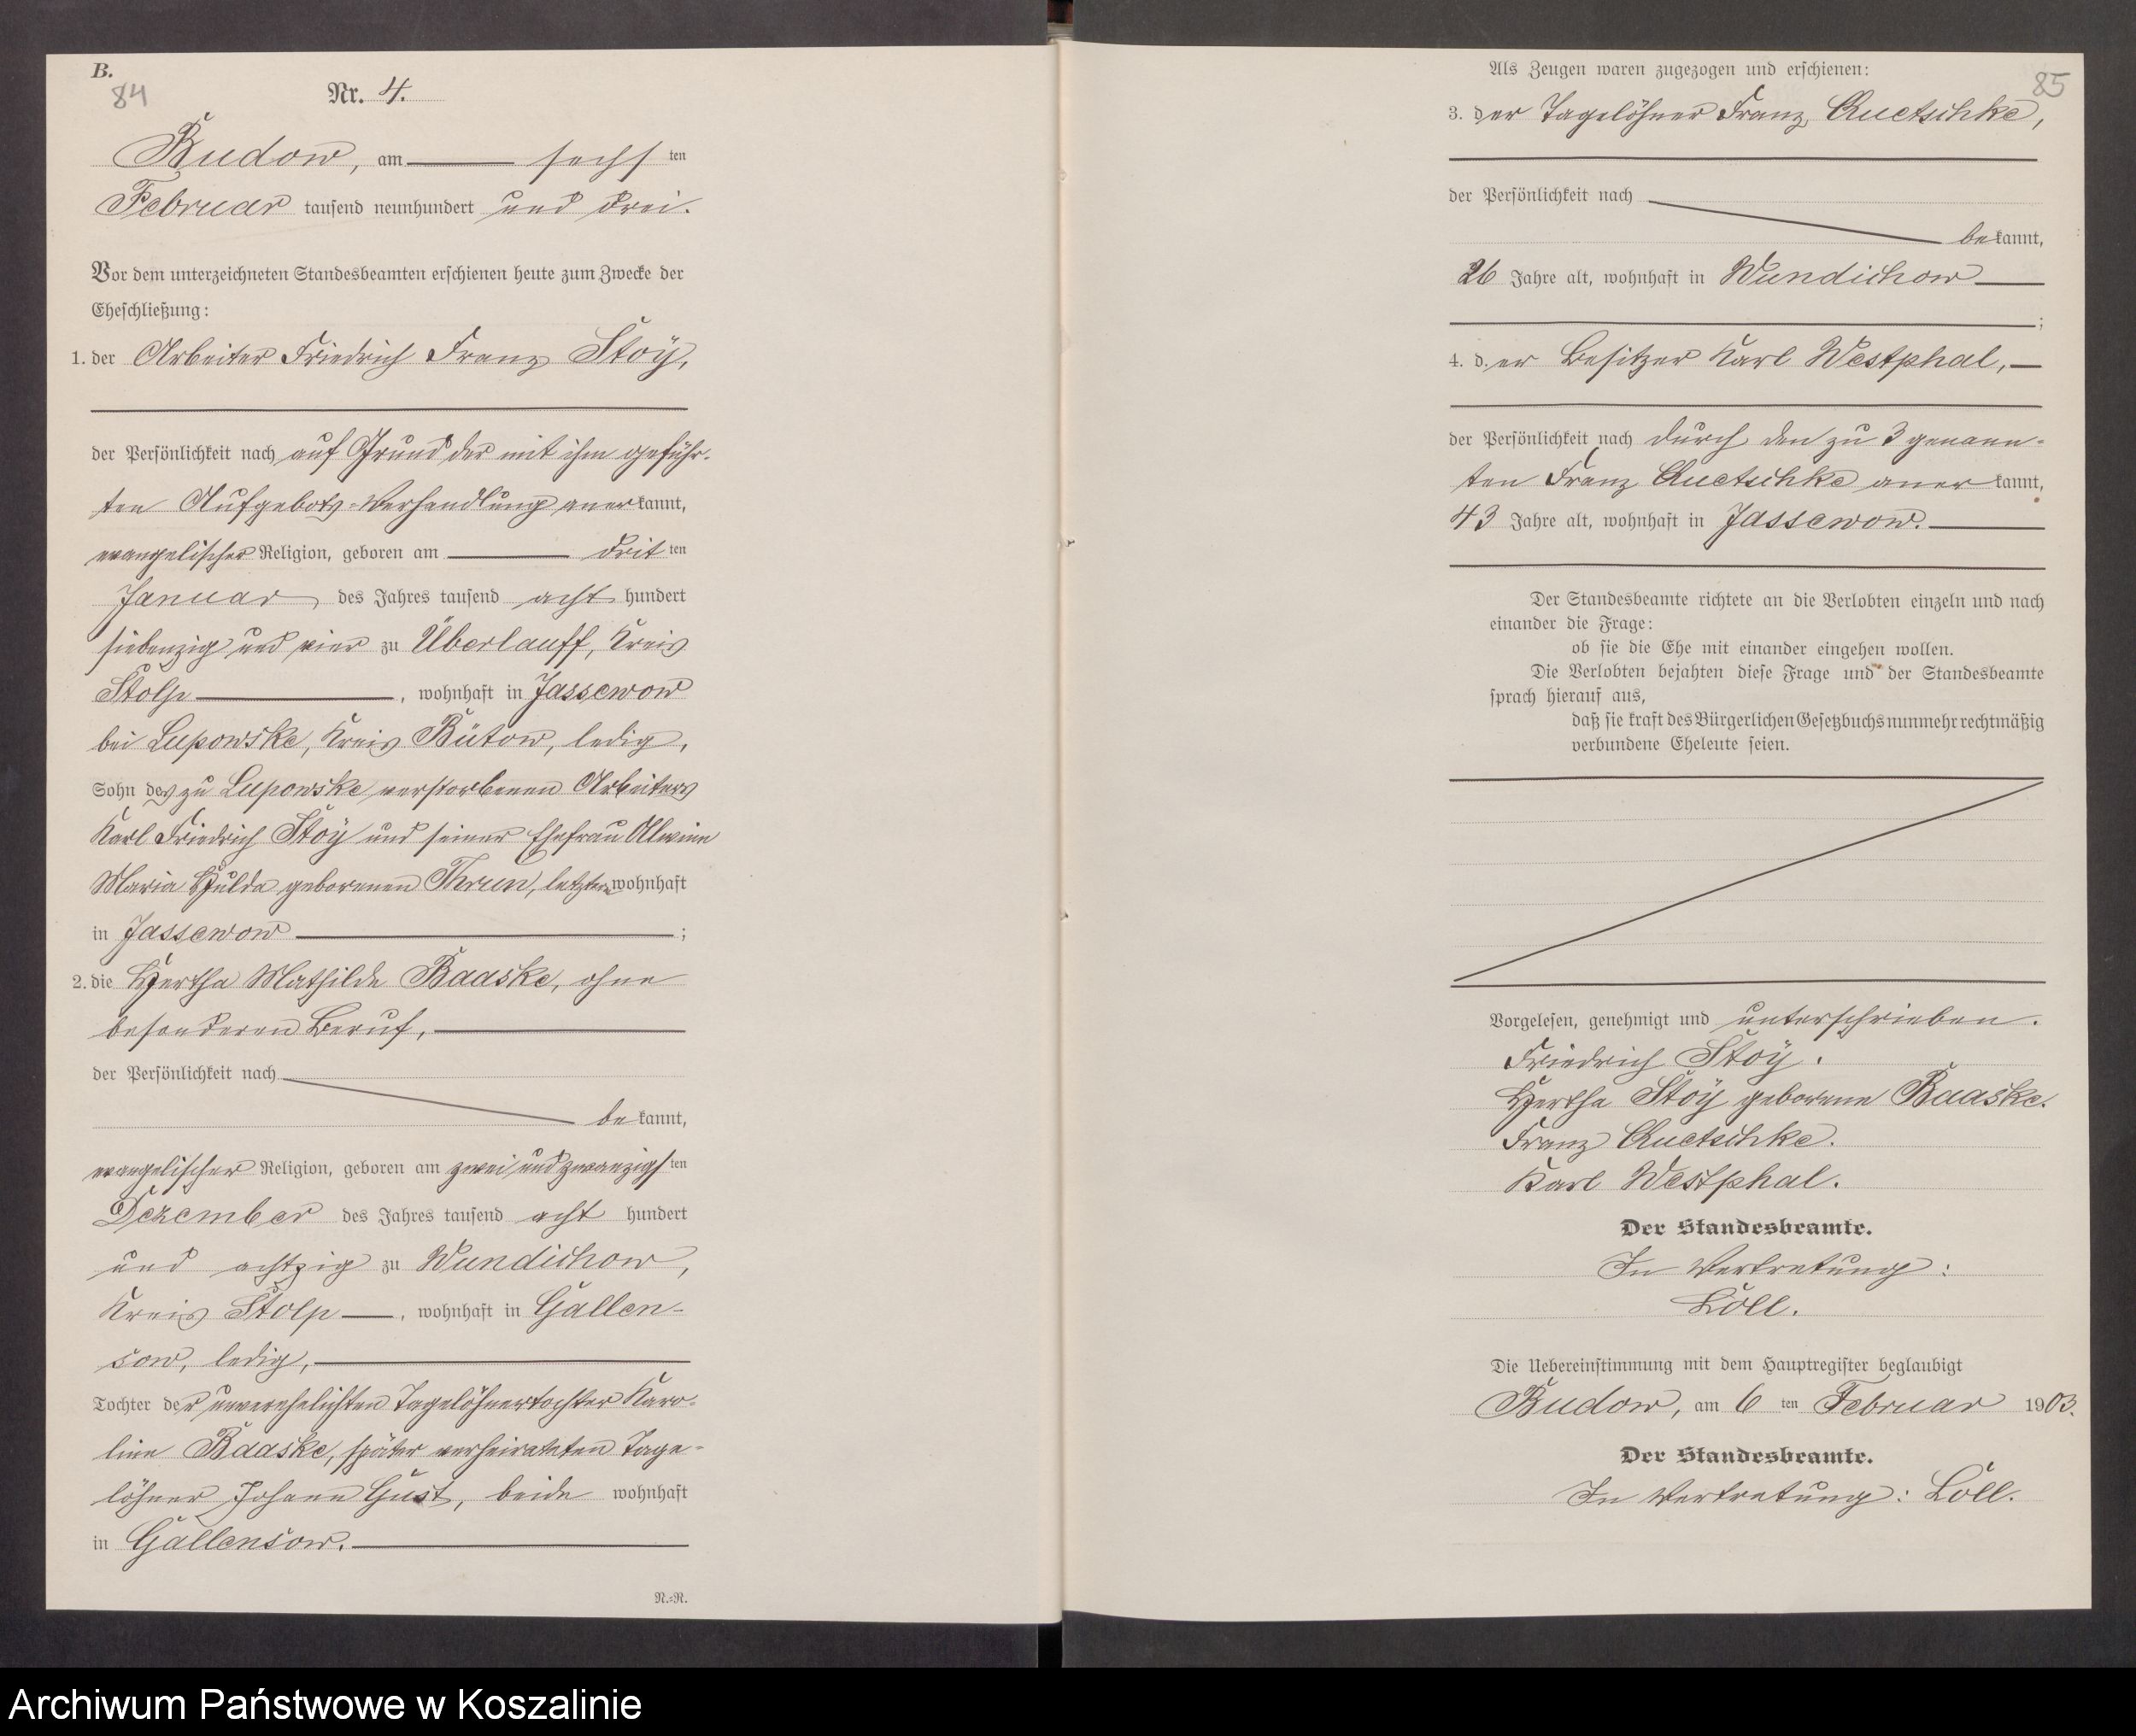 B.
84
Nr. 4.
Budow, am sechsten
Februar tausend neunhundert und drei.
Vor dem unterzeichneten Standesbeamten erschienen heute zum Zwecke der
Eheschließung:
1. der Arbeiter Friedrich Franz Stoÿ,
der Persönlichkeit nach auf Grund der mit ihm geführ-
ten Aufgebots-Verhandlung anerkannt,
evangelischer Religion, geboren am dritten
Januar des Jahres tausend acht hundert
siebenzig und vier zu Überlauff, Kreis
Stolp, wohnhaft in Jassewow
bei Lupowske, Kreis Bütow, ledig,
Sohn des zu Lupowske verstorbenen Arbeiters
Karl Friedrich Stoÿ und seiner Ehefrau Alwine
Maria Hulda geborenen Thrun, letztere wohnhaft
in Jassewow ;
2. die Hertha Mathilde Baaske, ohne
besonderen Beruf,
der Persönlichkeit nach
bekannt,
evangelischer Religion, geboren am zwei und zwanzigsten
Dezember des Jahres tausend acht hundert
und achtzig zu Wundichow,
Kreis Stolp, wohnhaft in Gallen-
sow, ledig,
Tochter der unverehelichten Tagelöhnertochter Karo-
line Baaske, später verheirateten Tage-
löhner Johann Gust, beide wohnhaft
in Gallensow.
N.=N.
85
Als Zeugen waren zugezogen und erschienen:
3. der Tagelöhner Franz Quetschke,
der Persönlichkeit nach
bekannt,
26 Jahre alt, wohnhaft in Wundichow
;
4. d.er Besitzer Karl Westphal,
der Persönlichkeit nach durch den zu 3 genann-
ten Franz Quetschke anerkannt,
43 Jahre alt, wohnhaft in Jassewow.
Der Standesbeamte richtete an die Verlobten einzeln und nach
einander die Frage:
ob sie die Ehe mit einander eingehen wollen.
Die Verlobten bejahten diese Frage und der Standesbeamte
sprach hierauf aus,
daß sie kraft des Bürgerlichen Gesetzbuchs nunmehr rechtmäßig
verbundene Eheleute seien.
Vorgelesen, genehmigt und unterschrieben.
Friedrich Stoÿ.
Hertha Stoÿ geborene Baaske.
Franz Quetschke.
Karl Westphal.
Der Standesbeamte.
In Vertretung:
Löll.
Die Uebereinstimmung mit dem Hauptregister beglaubigt
Budow, am 6 ten Februar 1903.
Der Standesbeamte.
In Vertretung: Löll.
Archiwum Państwowe w Koszalinie